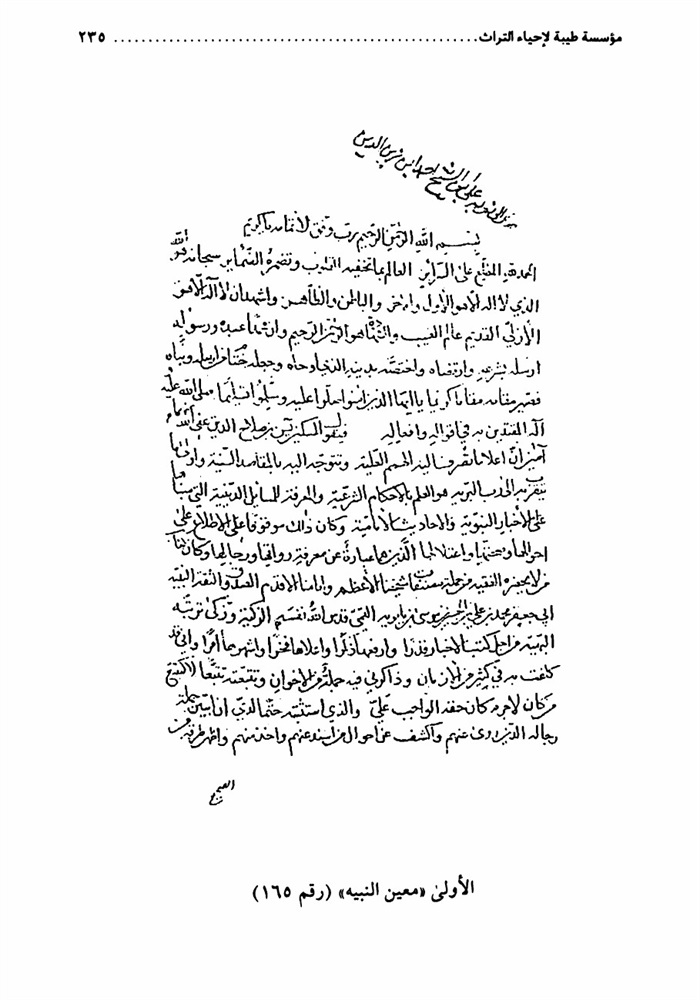 مؤسسة طيبة لإحياء التراث ................................................ ٢٣٥
علي بن الشيخ احمد ابن زين الدين
بسم الله الرحمن الرحيم رب وفق لاتمامه يا كريم
الحمد لله المطلع على السراير العالم بما تخفيه القلوب وتضمره الضماير سبحانه هو الله
الذي لا اله الا هو الاول والاخر والباطن والظاهر واشهد ان لا اله الا هو
الازلي القديم عالم الغيب والشهادة هو الرحمن الرحيم وان محمدا عبده ورسوله
ارسله بشرعه وارتضاه واختصه بدينه الذي اوحاه وجعله ختما من ارسله ونباه
يا ايها الذين امنوا صلوا عليه وسلموا تسليما صلى الله عليه
اله المقتدين به في اقواله وافعاله فيقول المسكين يس بن صلاح الدين عفى الله
آمين ان اعلا ما تصرف اليه الهمم العلية وتتوجه اليه المقاصد السنية
هو العلم بالاحكام الشرعية والمعرفة للمسايل الدينية التي
على الاخبار النبوية والاحاديث الامامية وكان ذلك موقوفا على الاطلاع على
احوالها وصحتها واعتلالها الذين هما عبارة عن معرفة رواتها ورجالها وكان كتاب
من لا يحضره الفقيه من جملة مصنفات شيخنا الاعظم وامامنا الاقدم الصدوق الثقة النبيه
ابي جعفر محمد بن علي بن الحسين بن موسى بن بابويه القمي قدس الله نفسه الزكية وزكى تربته
من اجل كتب الاخبار قدرا وارفعها ذكرا واعلاها فخرا واشهرها امرا واني قد
في كثير من الازمان وذاكرني فيه جملة من الاخوان وتتبعته تتبعا
من كان لامره كان حقه الواجب علي والذي استثبته حتما لدي ان ابين جملة
رجاله الذين روى عنهم واكشف عن احوال من اسند عنهم واخذ منهم واظهر طرقه من
الصحيح
الأولىٰ «معين النبيه» (رقم ١٦٥)